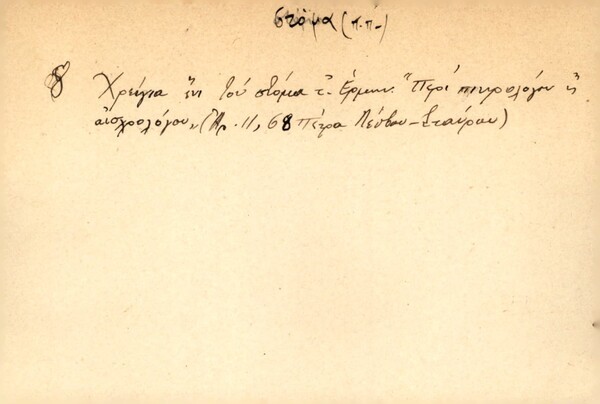 στόμα (π.π-)
Χρείγια ἔν' τοὺ στόμα τ'. Ἑρμην. "Περὶ πικρολόγου ἢ
αἰσχρολόγου„ (Ἀρ. 11, 68 Πέτρα Λέσβου - Σταύρου)